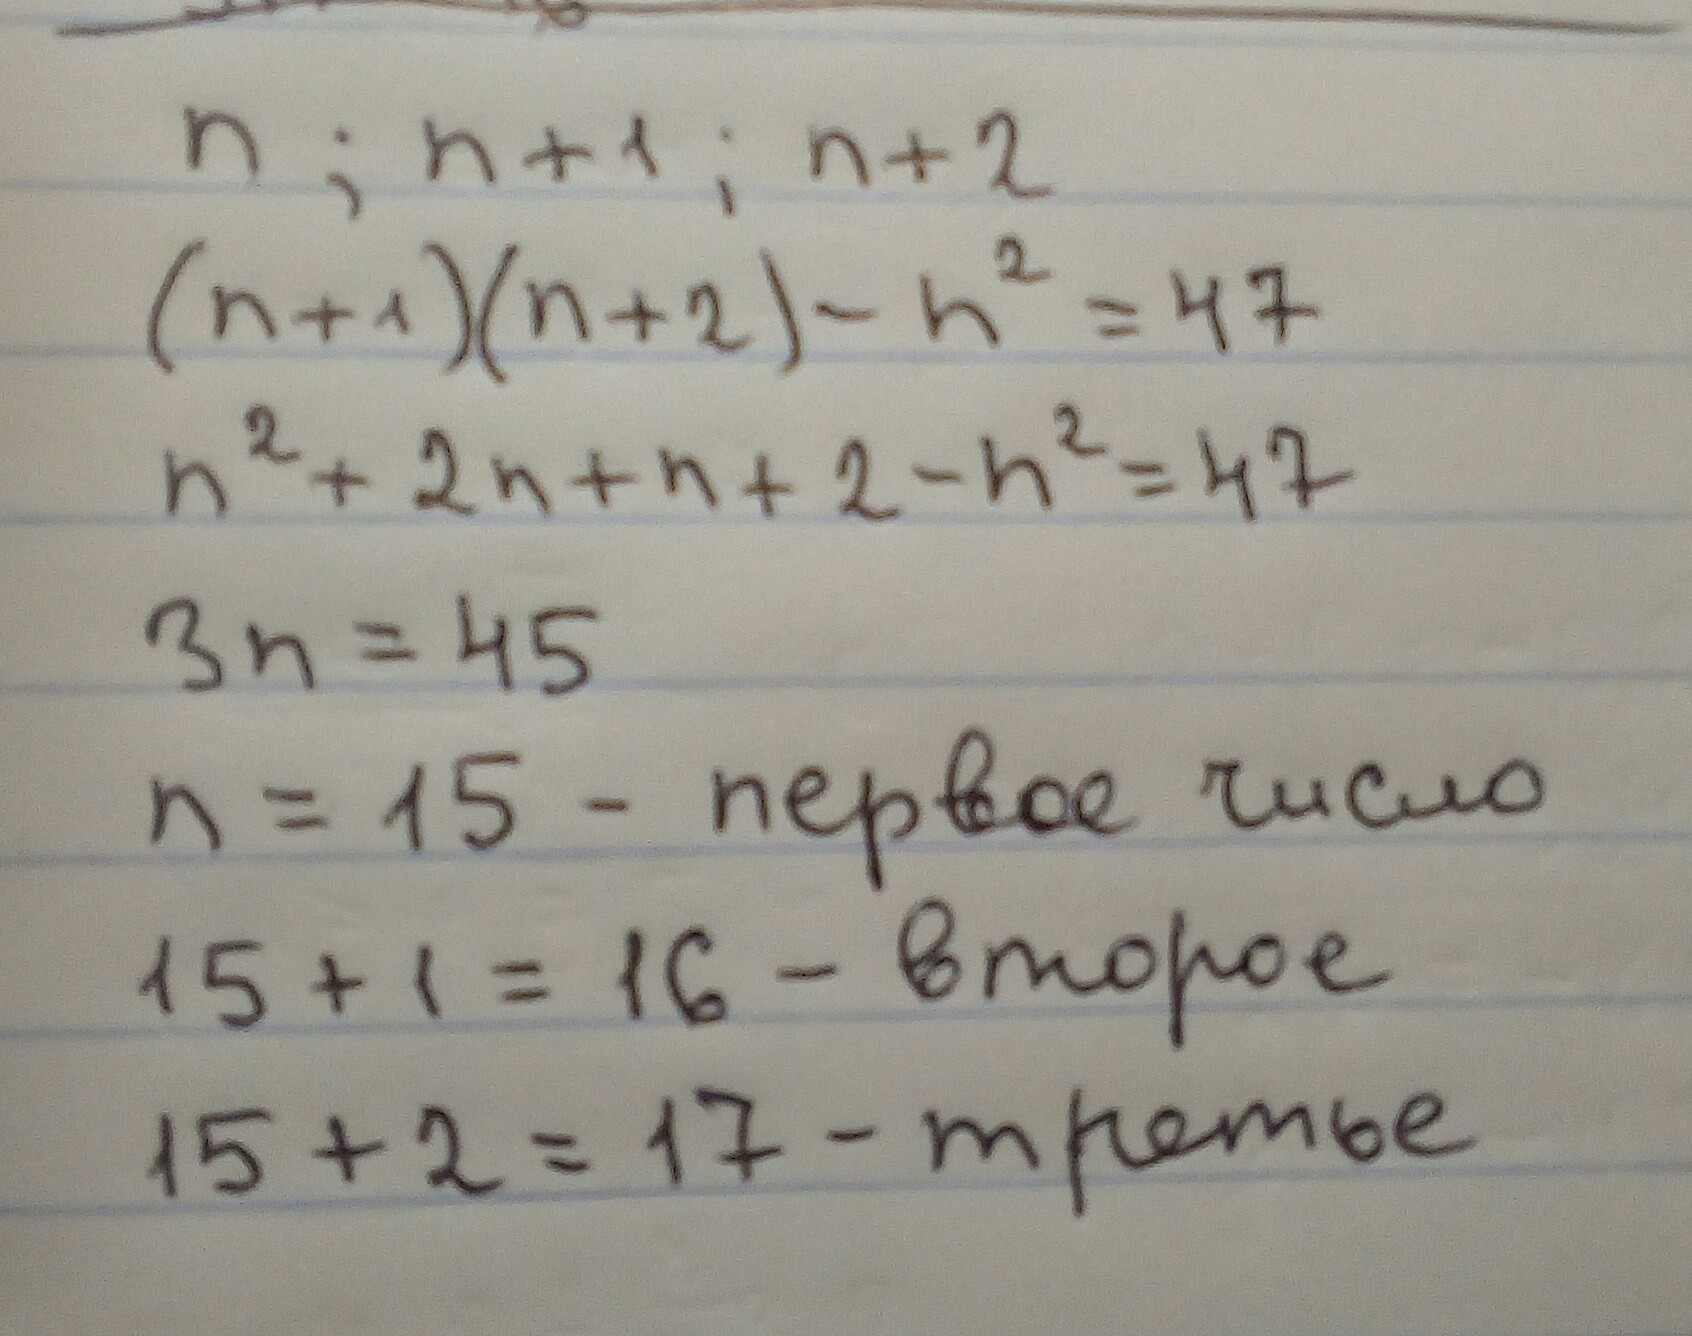 n ; n+1 ; n+2
(n+1)(n+2) - n² = 47
n² + 2n + n + 2 - n² = 47
3n = 45
n = 15 - первое число
15 + 1 = 16 - второе
15 + 2 = 17 - третье